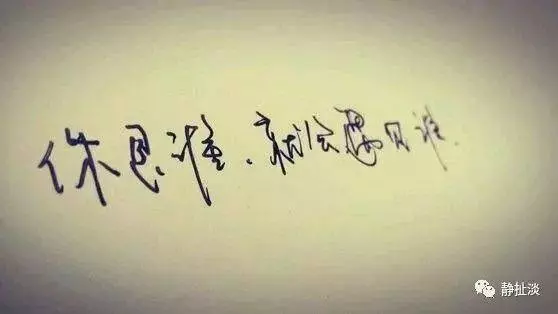 你是谁，就会遇见谁.
静扯淡